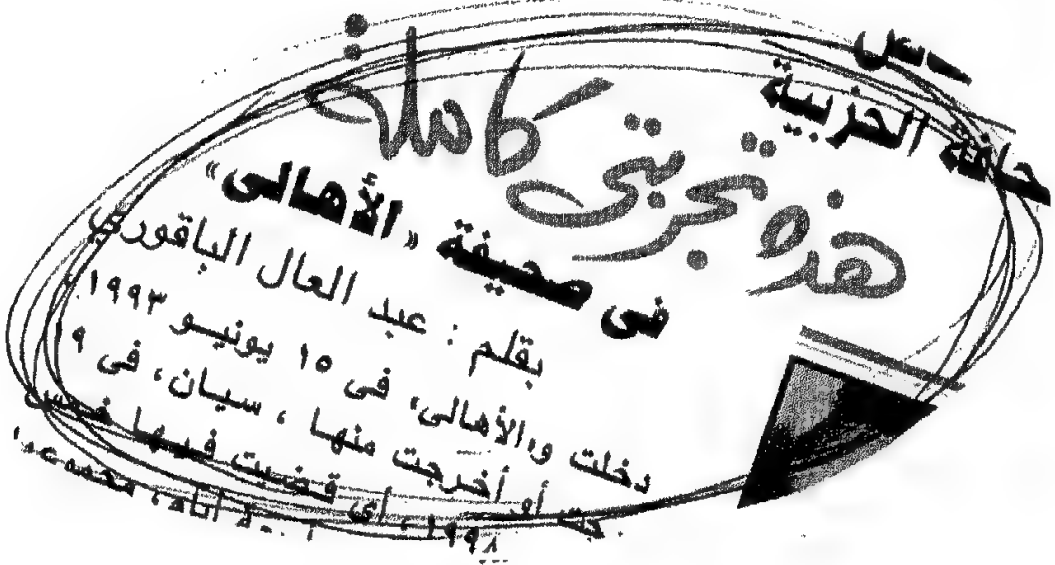 الحزبية
هذه تجربتى كاملة
فى صحيفة «الأهالى»
بقلم : عبد العال الباقورى
دخلت و«الأهالى» فى ١٥ يونيو ١٩٩٣
أو أخرجت منها ، سيان، فى ١٩
١٩٩٨ ، أى قضيت فيها خمس